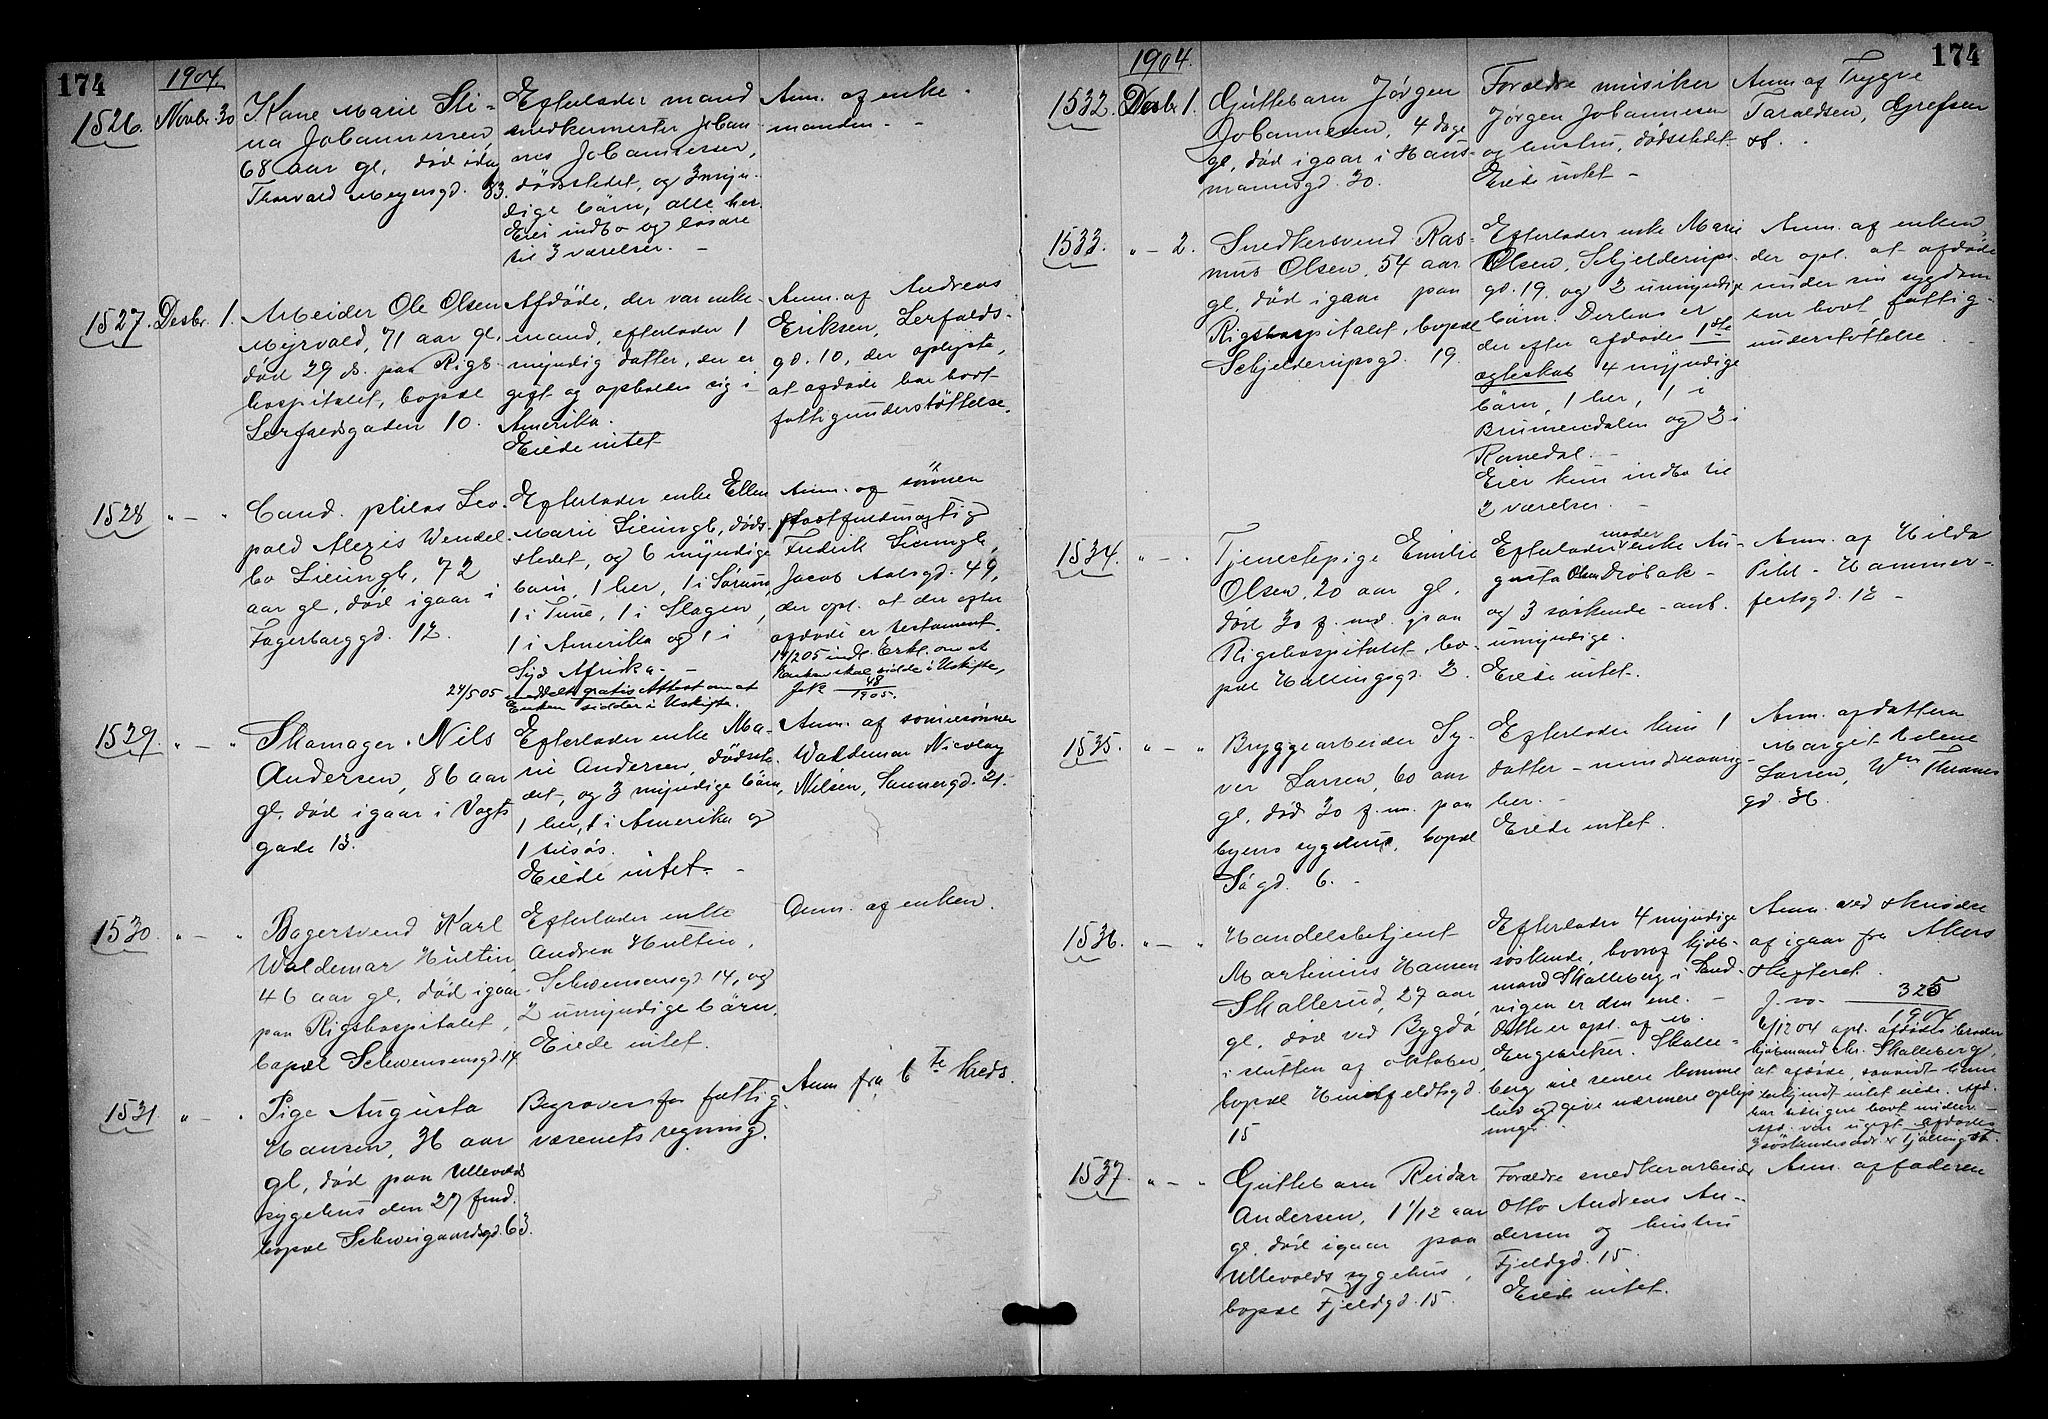 174
1904.
1526. Novbr. 30
Kare Marie Sti-
na Johannessen,
68 aar gl., død idag
Thorvald Meyersgd. 83.
Efterlader mand
snedkermester Johan-
nes Johannessen,
dødsstedet, og 3 myn-
dige børn, alle her.
Eier indbo og løsøre
til 3 værelser. -
Anm. af enke-
manden. -
1527. Desbr. 1.
Arbeider Ole Olsen
Myrvald, 71 aar gl.
død 29 ds. paa Rigs-
hospitalet, bopæl
Lerfaldsgaden 10.
Afdøde, der var enke-
mand, efterlader 1
myndig datter, der er
gift og opholder sig i
Amerika.
Eiede intet
Anm. af Andreas
Eriksen, Lerfalds-
gd. 10, der oplyste,
at afdøde har havt
fattigunderstøttelse.
1528 " - "
Cand. philos Leo-
pold Alexis Wendel-
bo Lieungh, 72
aar gl., død igaar i
Fagerborggd. 12.
Efterlader enke Ellen
Marie Lieungh, døds-
stedet, og 6 myndige
børn, 1 her, 1 i Sørum,
1 i Tune, 1 i Slagen,
1 i Amerika og 1 i
Syd Afrika. -
24/5 05 meddelt gratis Attest om at
Enken sidder i Uskifte.
Anm. af sønnen
postfuldmægtig
Fredrik Lieungh,
Jacob Aalsgd. 49,
der opl. at der efter
afdøde er testament.
19/2 05 indl. Erkl. om at
Enken skal sidde i Uskifte,
Jok 48/1905.
1529. " - "
Skomager Nils
Andersen, 86 aar
gl. død igaar i Vogts
gade 13.
Efterlader enke Ma-
rie Andersen, dødsste-
det, og 3 myndige børn,
1 her, 1 i Amerika og
1 tilsøs.
Eiede intet. -
Anm. af sønnesønnen
Waldemar Nicolay
Nilsen, Sannergd. 21.
1530. " - "
Bagersvend Karl
Waldemar Hultin,
46 aar gl., død igaar
paa Rigshospitalet,
bopæl Schwensensgd. 14
Efterlader enke
Andrea Hultin,
Schwensensgd 14, og
2 umyndige børn.
Eiede intet.
Anm. af enken.
1531 " - "
Pige Augusta
Hansen, 36 aar
gl., død paa Ullevolds
sygehus den 27 f.md.
bopæl Schweigaardsgd. 63.
Begraves for fattig-
væsenets regning.
Anm. fra 6te kreds.
174
1904.
1532. Desbr 1.
Guttebarn Jørgen
Johannesen, 4 dage
gl., død igaar i Haus-
mannsgd. 30.
Forældre musiker
Jørgen Johannesen
og hustru, dødsstedet
Eiede intet -
Anm. af Trygve
Taraldsen, Grefsen
st. .
1533. " - 2.
Snedkersvend Ras-
mus Olsen, 54 aar
gl., død igaar paa
Rigshospitalet, bopæl
Schjelderupsgd. 19.
Efterlader enke Marie
Olsen, Schjelderups-
gd. 19. og 2 umyndige
børn. Derhos er
der efter afdødes 1ste
ægteskab 4 myndige
børn, 1 her, 1 i
Brumendalen og 2 i
Romedal. -
Eier kun indbo til
2 værelser. -
Anm. af enken,
der opl. at afdøde
under sin sygdom
har havt fattig-
understøttelse.
1534. " - .
Tjenestepige Emilie
Olsen, 20 aar gl.,
død 30 f. md. paa
Rigshospitalet, bo-
pæl Hallingsgd. 2.
moder
Efterlader enke Au-
gusta Olsen Drøbak -
og 3 søskende - ant.
umyndige.
Eiede intet.
Anm. af Hilda
Pihl - Hammer-
festsgd. 12 -
1535. " - "
Bryggearbeider Sy-
ver Larsen, 60 aar
gl., død 30 f. m. paa
byens sygehus, bopæl
Søgd. 6. -
Efterlader kun 1
datter - mindreaarig
her. -
Eiede intet.
Anm. af datteren
Marget Helene
Larsen, Wm Thranes
gd. 36.
1536. " - "
Handelsbetjent
Martinius Hansen
Skallerud, 27 aar
gl., død ved Bygdø
i slutten af oktober,
bopæl Huitfeldtsgd.
15
Efterlader 4 myndige
søskende, hvoraf kjøb-
mand Skalleberg i Sand-
vigen er den ene. -
Dette er opl. af M.
Engebriksen. Skalle-
berg vil senere komme
hid og give nærmere oplys-
ninger.
Anm. ved skrivelse
af igaar fra Akers
skifteret.
J. no. 325/1904
6/12 04 opl. afdødes broder
kjøbmand Chr. Skalleberg,
at afdøde, saavidt ham
bekjendt intet eiede. Afd.
har tidligere havt
Afd. var ugift. Afdødes
1537. " - "
Guttebarn Reidar
Andersen, 1 1/12 aar
gl. død igaar paa
Ullevolds sygehus,
bopæl Fjeldgd. 15.
Forældre snedkerarbeider
Otto Andreas An-
dersen og hustru
Fjeldgd. 15.
Eiede intet.
Anm. af faderen